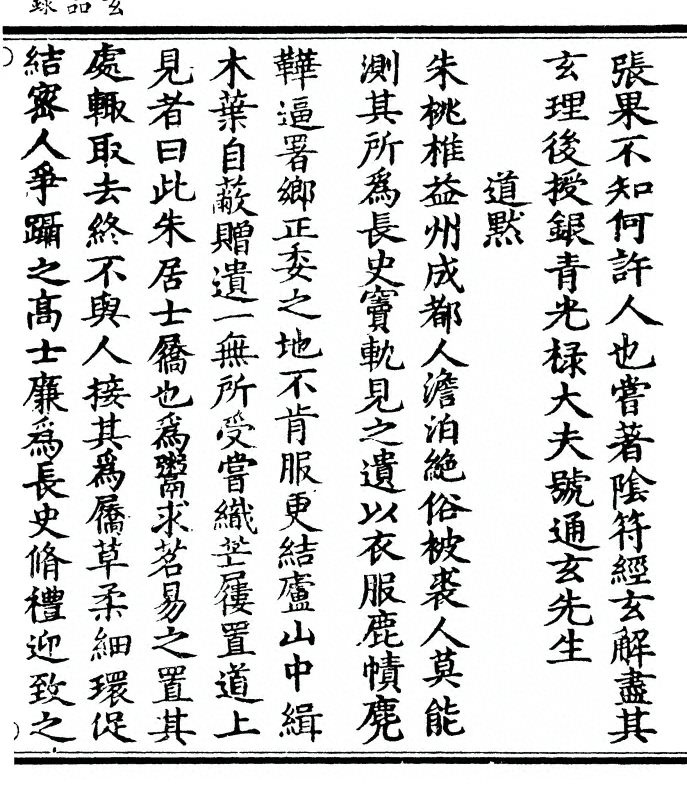 玄品錄
張果不知何許人也嘗著陰符經玄解盡其
玄理後授銀青光祿大夫號通玄先生
道黙
朱桃椎益州成都人澹泊絶俗被裘人莫能
測其所爲長史竇軌見之遺以衣服鹿幘麂
鞾逼署鄉正委之地不肯服更結廬山中緝
木葉自蔽贈遺一無所受嘗織芒屨置道上
見者曰此朱居士屩也爲鬻求茗易之置其
處輙取去終不與人接其爲屩草柔細環促
結宻人爭躡之高士廉爲長史脩禮迎致之